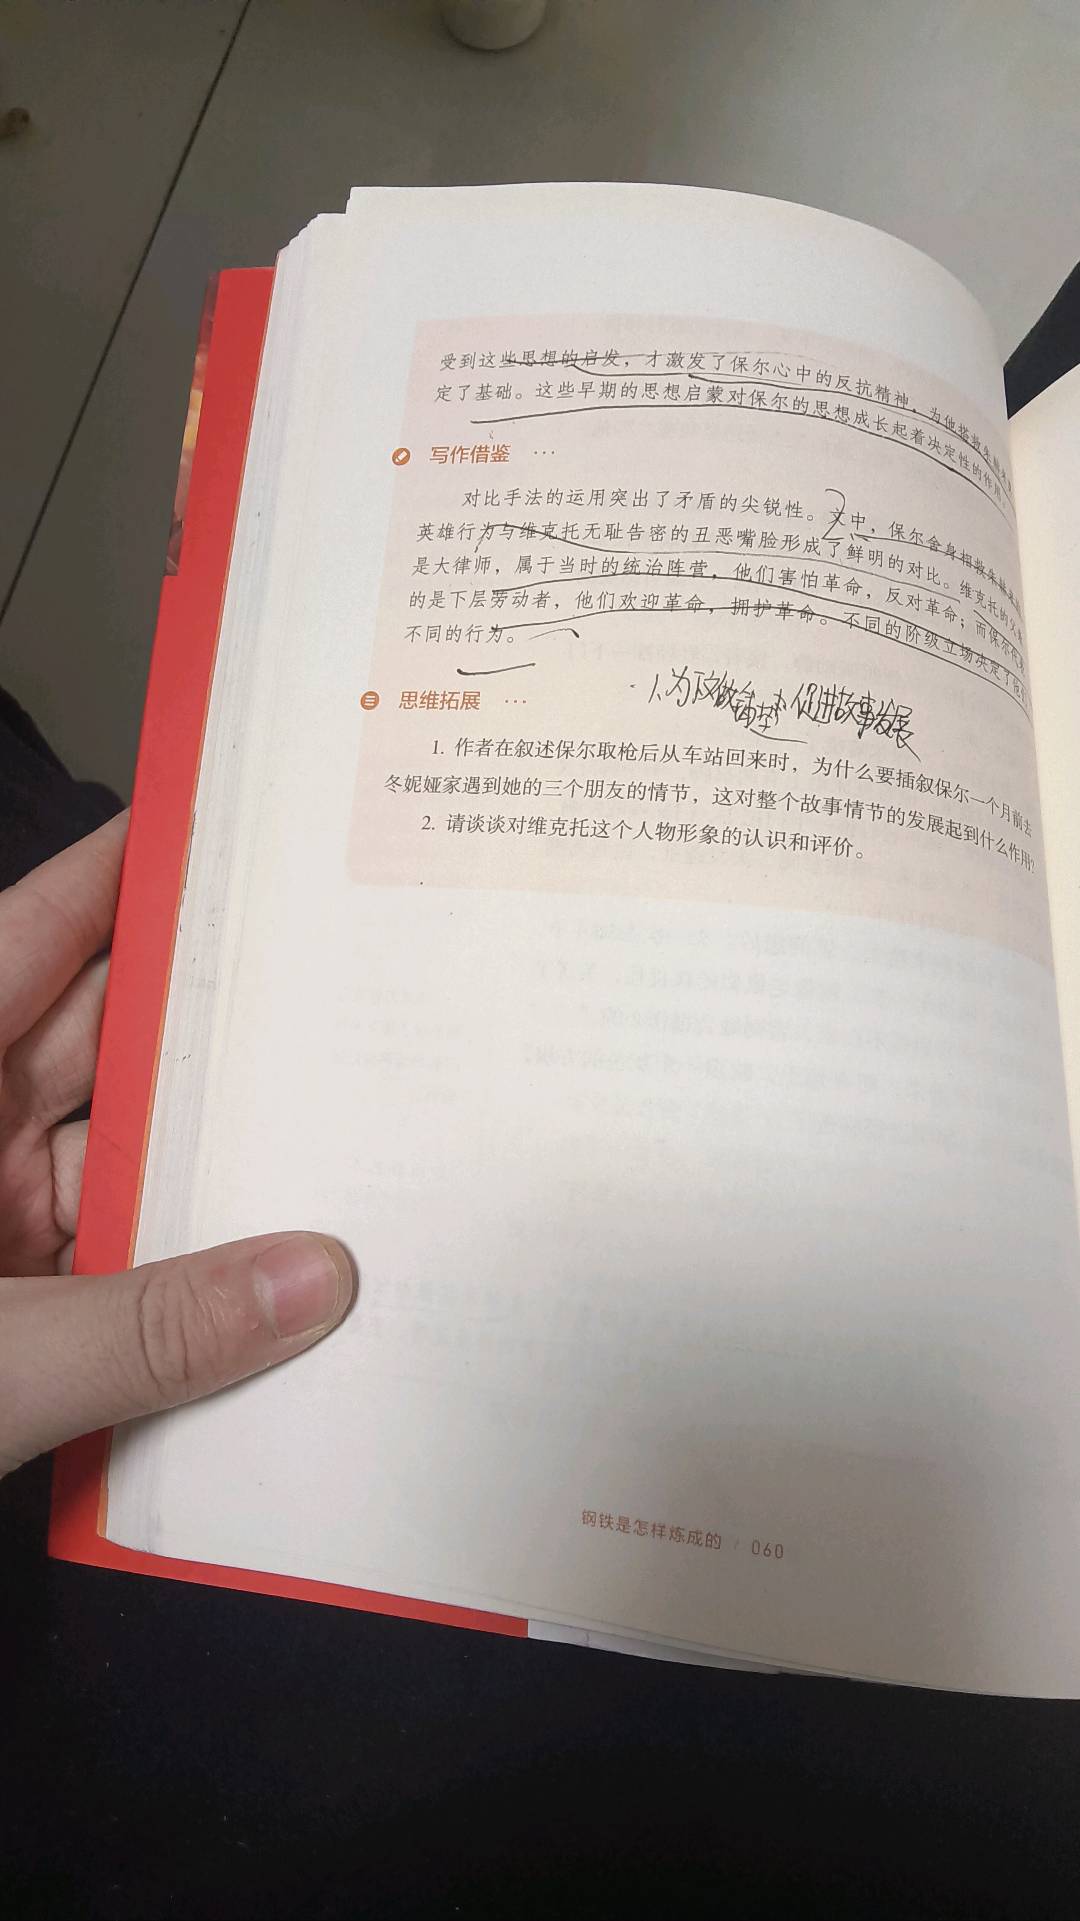 受到这些思想的启发，才激发了保尔心中的反抗精神，为他搭救朱赫来奠
定了基础。这些早期的思想启蒙对保尔的思想成长起着决定性的作用。
写作借鉴 ···
对比手法的运用突出了矛盾的尖锐性。文中，保尔舍身相救朱赫来的
英雄行为与维克托无耻告密的丑恶嘴脸形成了鲜明的对比。维克托的父亲
是大律师，属于当时的统治阵营，他们害怕革命，反对革命；而保尔代表
的是下层劳动者，他们欢迎革命，拥护革命。不同的阶级立场决定了他们
不同的行为。
1、为下文做铺垫 促进故事发展
思维拓展 ···
1. 作者在叙述保尔取枪后从车站回来时，为什么要插叙保尔一个月前去
冬妮娅家遇到她的三个朋友的情节，这对整个故事情节的发展起到什么作用？
2. 请谈谈对维克托这个人物形象的认识和评价。
钢铁是怎样炼成的 / 060